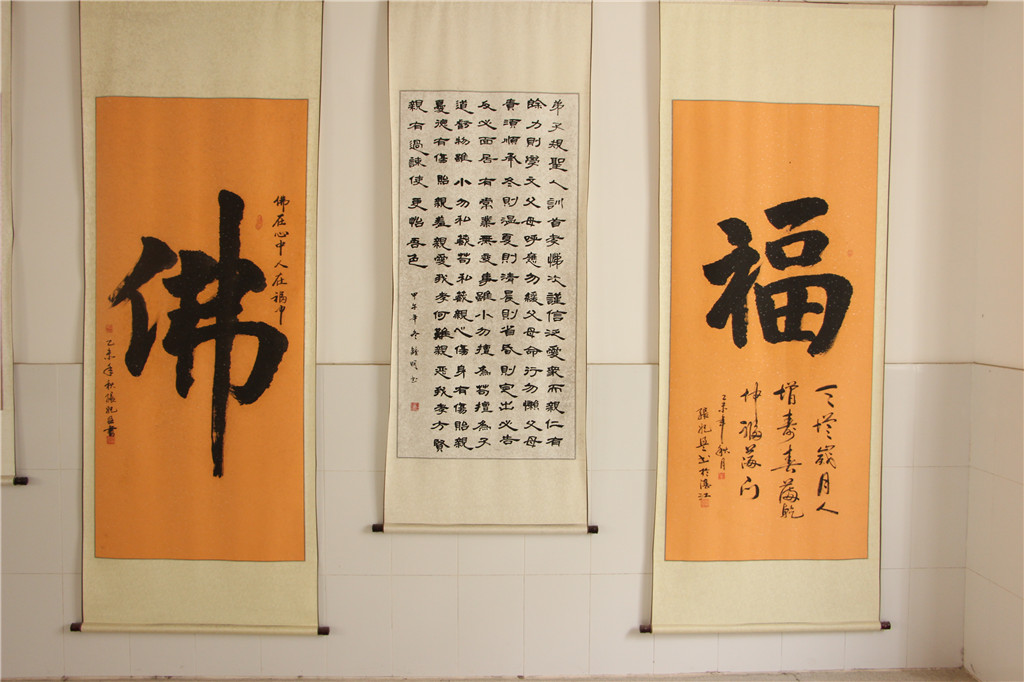 佛
佛在心中人在福中
乙未年秋張書
弟子規聖人訓首孝悌次謹信泛愛眾而親仁有
餘力則學文父母呼應勿緩父母命行勿懶父母
責須順承冬則溫夏則清晨則省昏則定出必告
反必面居有常業無變事雖小勿擅為苟擅為子
道虧物雖小勿私藏苟私藏親心傷身有傷貽親
憂德有傷貽親羞親愛我孝何難親惡我孝方賢
親有過諫使更怡吾色
甲午年冬書
福
天增歲月人
增壽春滿乾
坤福滿门
乙未年秋月
張書於湛江